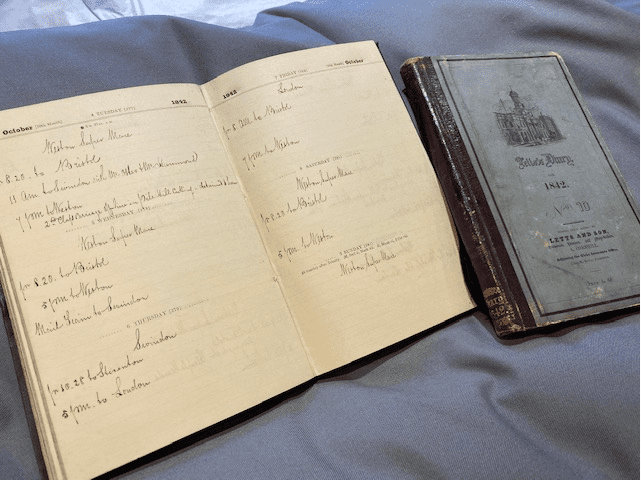 October (10th Month)
4 TUESDAY (277)
1842
Weston Super Mare
8.20. to Bristol
11 Am to Swindon with Mr.
7 pm to Weston
2nd Class Carriage
5 WEDNESDAY (278)
Weston Super Mare
fr 8.20. to Bristol
5 pm to Weston
Mail Train to Swindon
6 THURSDAY (279)
Swindon
fr 10.28 to Steventon
5 pm. to London
1842
7 FRIDAY (280)
(10th Month) October
London
fr 8 am to Bristol
7 pm to Weston
8 SATURDAY (281)
Weston Super Mare
fr 8.20 to Bristol
5 pm. to Weston
9 SUNDAY (282)
Weston Super Mare
Letts's Diary,
1842.
No. 10
LETTS AND SON,